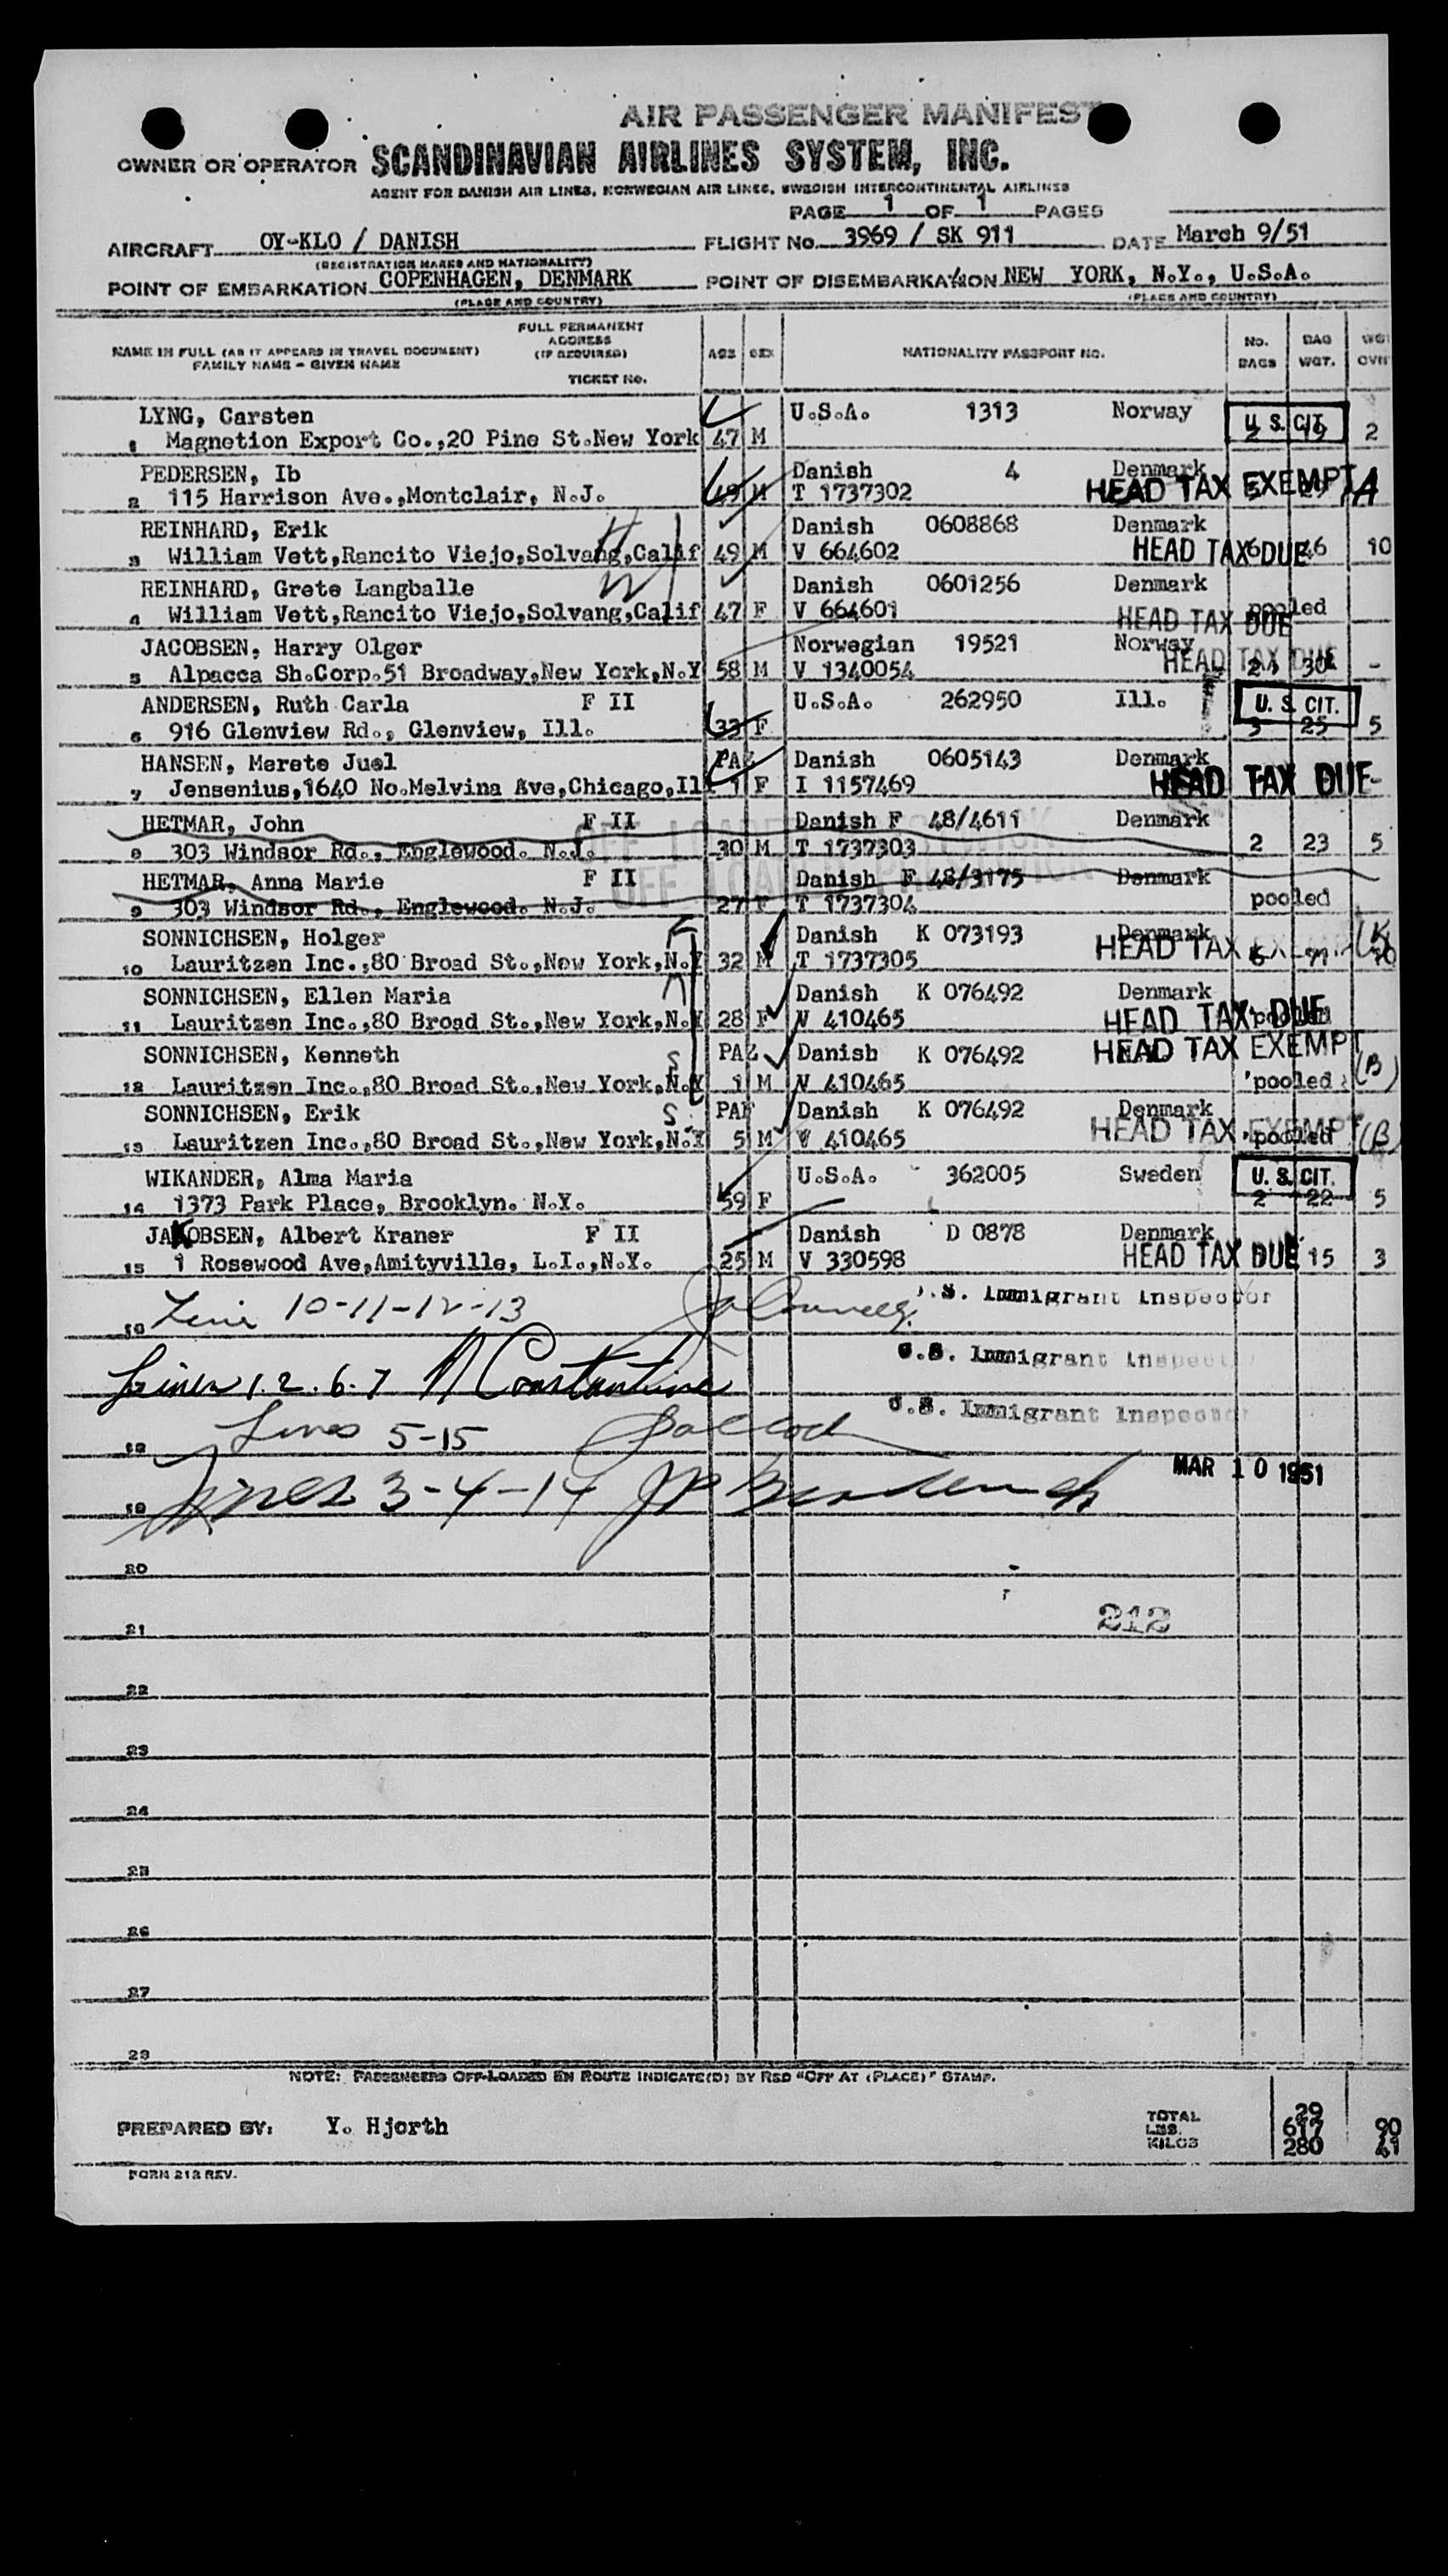 AIR PASSENGER MANIFEST
OWNER OR OPERATOR SCANDINAVIAN AIRLINES SYSTEM, INC.
AGENT FOR DANISH AIR LINES, NORWEGIAN AIR LINES, SWEDISH INTERCONTINENTAL AIRLINES
PAGE 1 OF 1 PAGES
AIRCRAFT OY-KLO / DANISH FLIGHT No. 3969 / SK 911 DATE March 9/51
(REGISTRATION MARKS AND NATIONALITY)
POINT OF EMBARKATION COPENHAGEN, DENMARK POINT OF DISEMBARKATION NEW YORK, N.Y., U.S.A.
(PLACE AND COUNTRY) (PLACE AND COUNTRY)
NAME IN FULL (AS IT APPEARS IN TRAVEL DOCUMENT) FAMILY NAME - GIVEN NAME FULL PERMANENT ADDRESS (IF REQUIRED) TICKET No. AGE SEX NATIONALITY PASSPORT NO. No. BAGS BAG WGT. WGT OVH
LYNG, Carsten U.S.A. 1313 Norway U.S. CIT.
1 Magnetion Export Co.,20 Pine St.New York 47 M 2
PEDERSEN, Ib Danish 4 Denmark
2 115 Harrison Ave.,Montclair, N.J. 49 M T 1737302 HEAD TAX EXEMPT A
REINHARD, Erik Danish 0608868 Denmark
3 William Vett,Rancito Viejo,Solvang,Calif 49 M V 664602 HEAD TAX DUE 6 46 10
REINHARD, Grete Langballe Danish 0601256 Denmark
4 William Vett,Rancito Viejo,Solvang,Calif 47 F V 664601 HEAD TAX DUE pooled
JACOBSEN, Harry Olger Norwegian 19521 Norway
5 Alpacca Sh.Corp.51 Broadway,New York,N.Y 58 M V 1340054 HEAD TAX DUE 2 30 -
ANDERSEN, Ruth Carla F II U.S.A. 262950 Ill. U.S. CIT.
6 916 Glenview Rd., Glenview, Ill. 33 F 3 25 5
HANSEN, Merete Juel PAZ Danish 0605143 Denmark
7 Jensenius,1640 No.Melvina Ave,Chicago,Il 1 F I 1157469 HEAD TAX DUE -
HETMAR, John F II Danish F 48/4611 Denmark
8 303 Windsor Rd., Englewood. N.J. 30 M T 1737303 2 23 5
HETMAR, Anna Marie F II Danish F 48/3175 Denmark
9 303 Windsor Rd., Englewood. N.J. 27 F T 1737304 pooled
SONNICHSEN, Holger Danish K 073193 Denmark
10 Lauritzen Inc.,80 Broad St.,New York,N.Y 32 M T 1737305 HEAD TAX
SONNICHSEN, Ellen Maria Danish K 076492 Denmark
11 Lauritzen Inc.,80 Broad St.,New York,N.Y 28 F V 410465 HEAD TAX DUE pooled
SONNICHSEN, Kenneth S PAZ Danish K 076492 HEAD TAX EXEMPT
12 Lauritzen Inc.,80 Broad St.,New York,N.Y 1 M V 410465 pooled (B)
SONNICHSEN, Erik S PAF Danish K 076492 Denmark
13 Lauritzen Inc.,80 Broad St.,New York,N.Y 5 M V 410465 HEAD TAX EXEMPT pooled (B)
WIKANDER, Alma Maria U.S.A. 362005 Sweden U.S. CIT.
14 1373 Park Place, Brooklyn. N.Y. 59 F 2 22 5
JAKOBSEN, Albert Kraner F II Danish D 0878 Denmark
15 1 Rosewood Ave,Amityville, L.I.,N.Y. 25 M V 330598 HEAD TAX DUE 15 3
16 Line 10-11-12-13 U.S. Immigrant Inspector
Lines 1.2.6.7 N Constantine U.S. Immigrant Inspector
Lines 5-15 U.S. Immigrant Inspector
18
Lines 3-4-14 MAR 10 1951
19
20
212
21
22
23
24
25
26
27
28
NOTE: PASSENGERS OFF-LOADED EN ROUTE INDICATE(D) BY RED "OFF AT (PLACE)" STAMP.
PREPARED BY: Y. Hjorth TOTAL 29
LBS. 617 90
KILOS 280 41
FORM 212 REV.